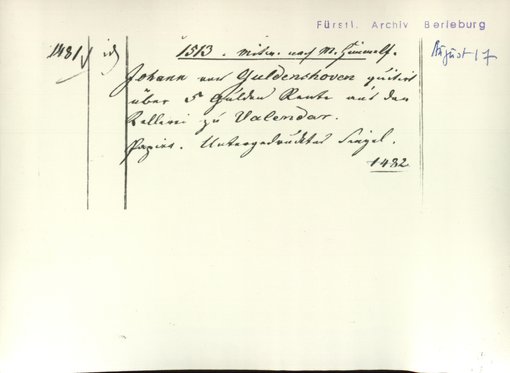 Fürstl. Archiv Berleburg
1481 id 1513. Mitw. nach M. Himmelf. August 17
Johann von Guldenshoven quitirt
über 5 Gulden Rente aus der
Kellerei zu Valendar.
Papier. Untergedrücktes Siegel.
1482